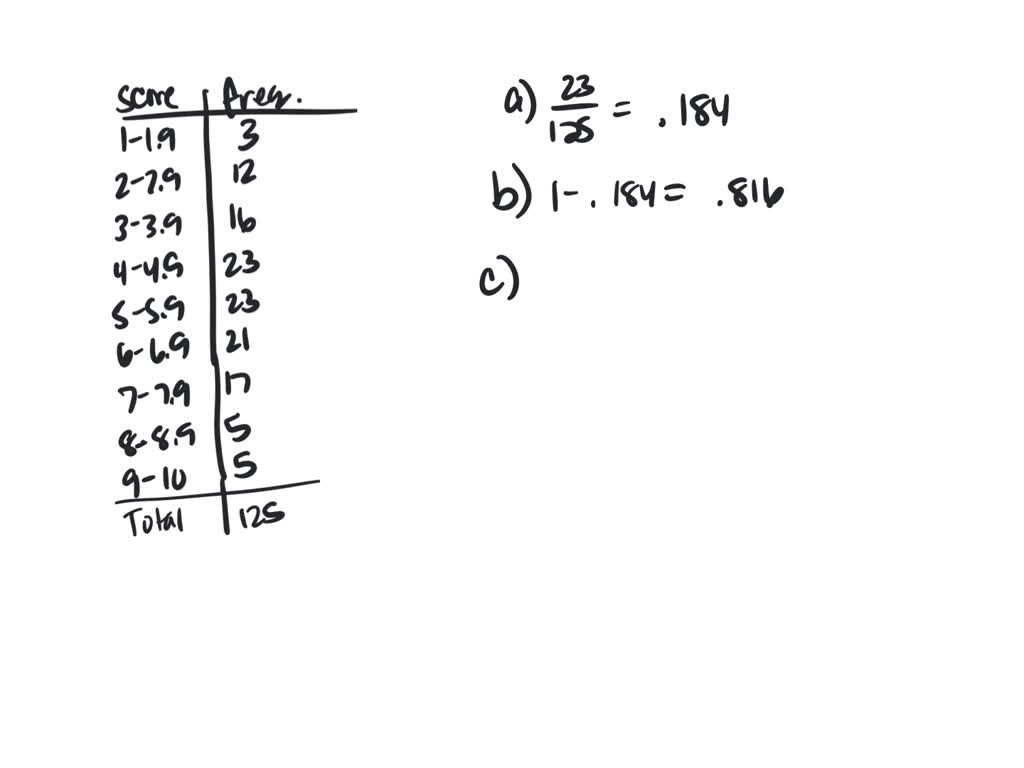 Score Freq.
1-1.9 3
2-2.9 12
3-3.9 16
4-4.9 23
5-5.9 23
6-6.9 21
7-7.9 17
8-8.9 5
9-10 5
Total 125
a) 23/125 = .184
b) 1 - .184 = .816
c)